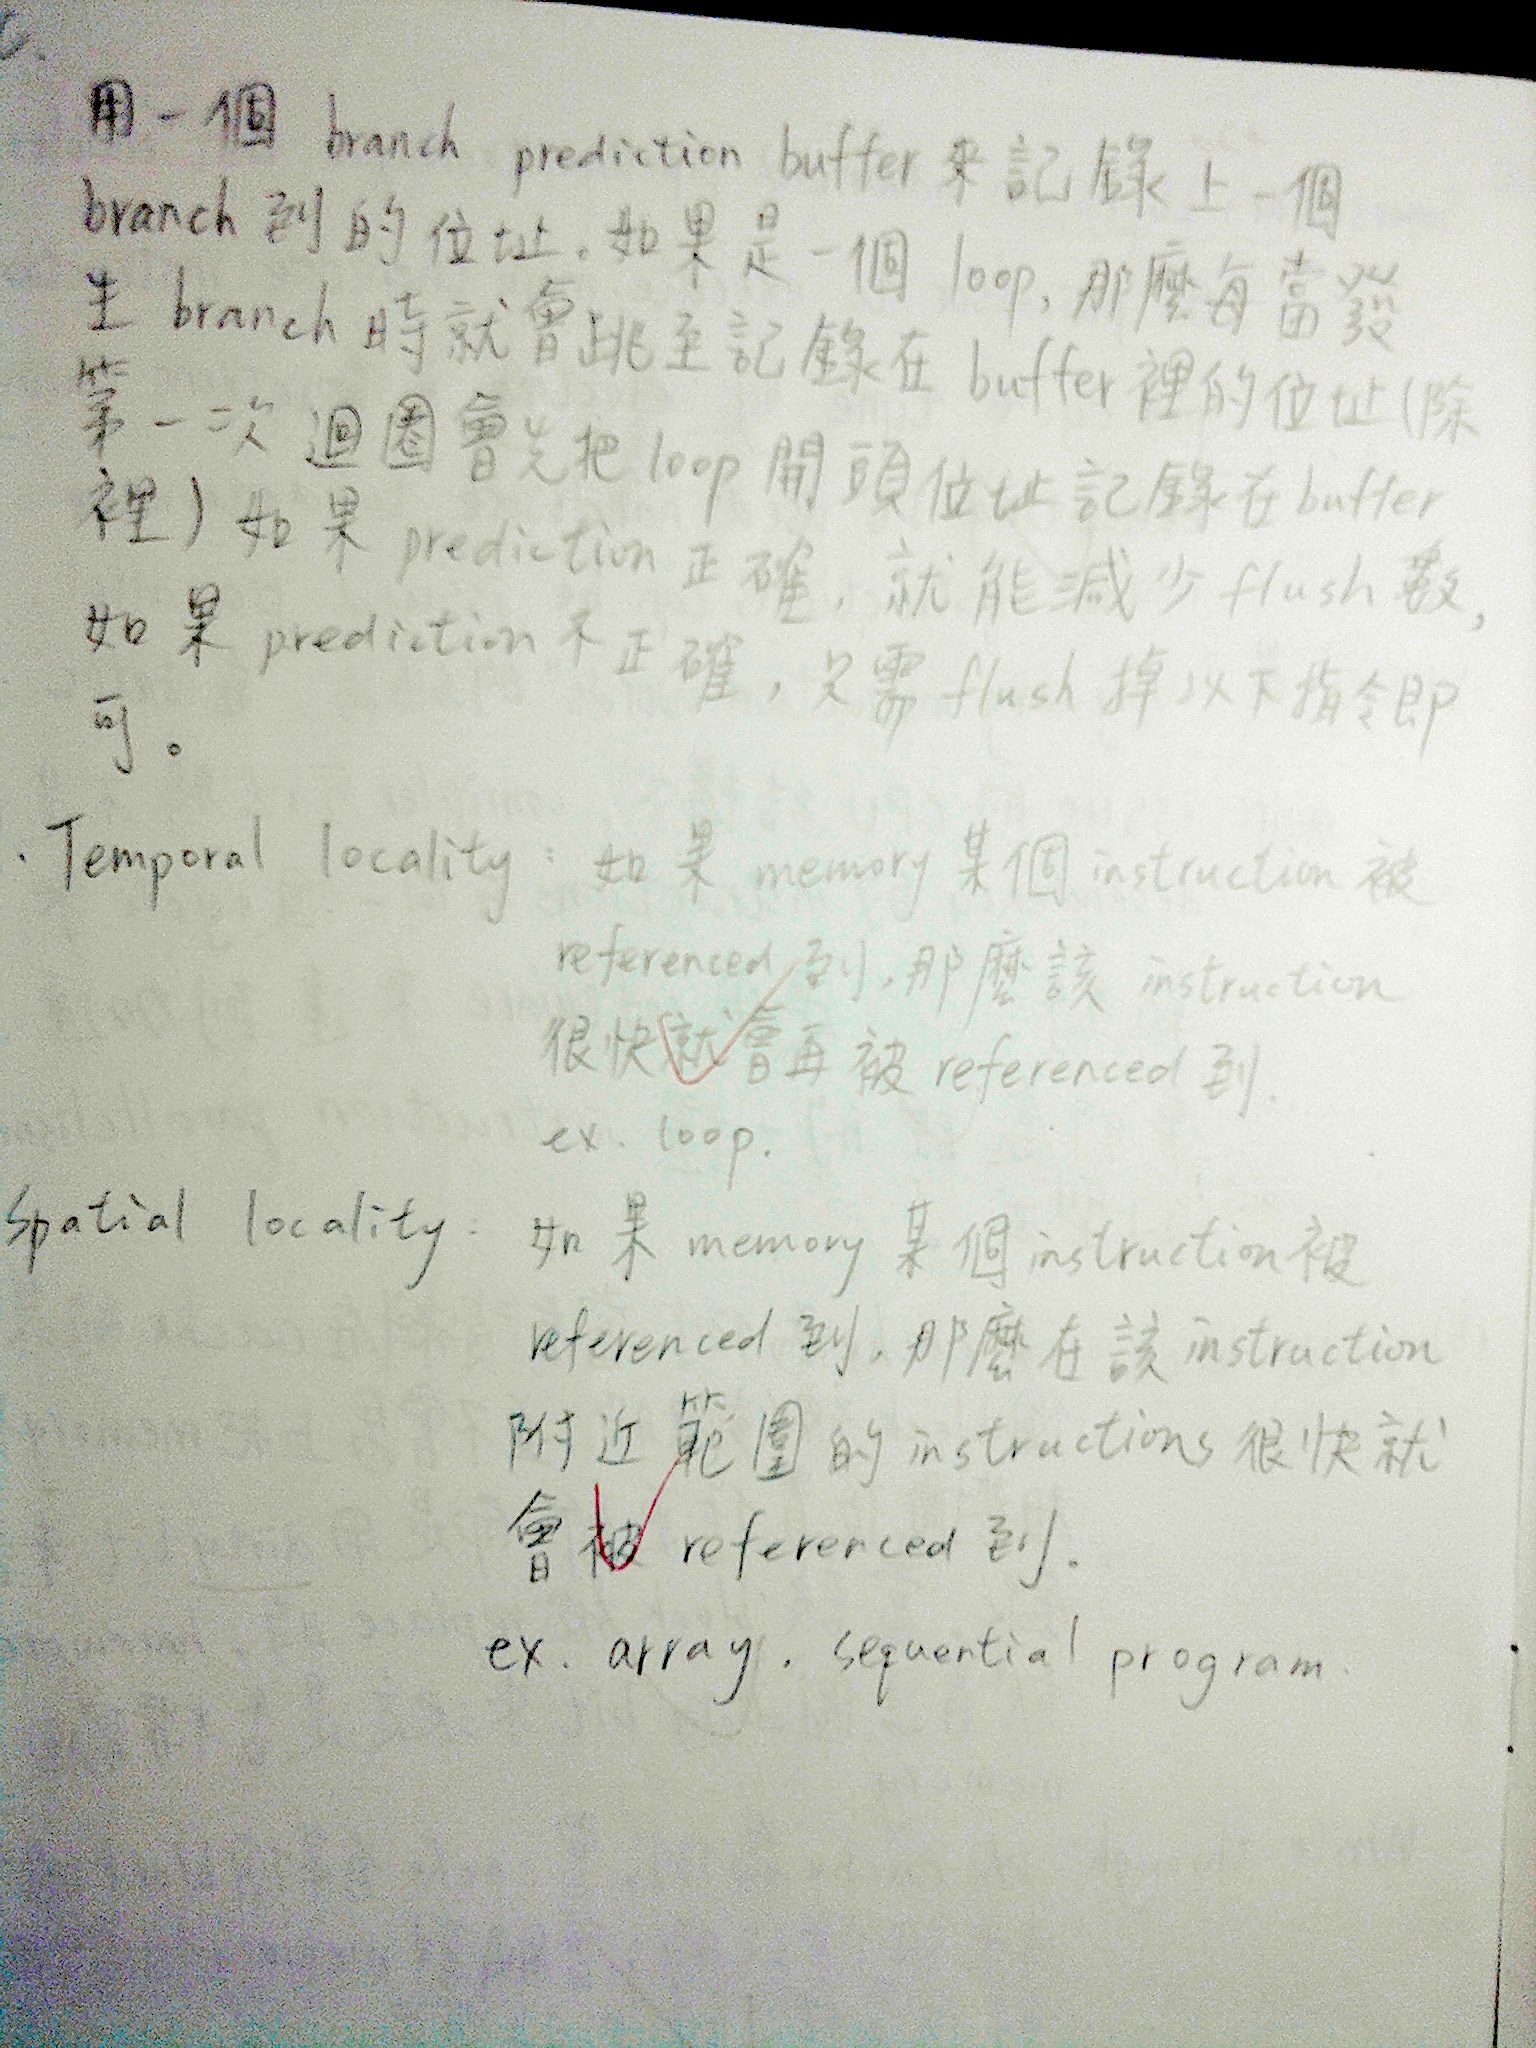 用一個 branch prediction buffer 來記錄上一個
branch 到的位址。如果是一個 loop, 那麼每當發
生 branch 時就會跳至記錄在 buffer 裡的位址 (除
第一次迴圈會先把 loop 開頭位址記錄在 buffer
裡) 如果 prediction 正確, 就能減少 flush 數,
如果 prediction 不正確, 只需 flush 掉以下指令即
可。
. Temporal locality: 如果 memory 某個 instruction 被
referenced 到, 那麼該 instruction
很快就會再被 referenced 到.
ex. loop.
Spatial locality: 如果 memory 某個 instruction 被
referenced 到, 那麼在該 instruction
附近範圍的 instructions 很快就
會被 referenced 到.
ex. array. sequential program.